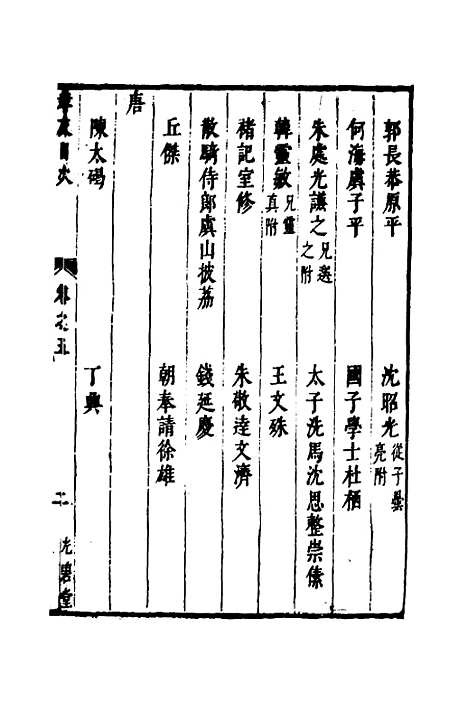 郭長恭原平 沈昭光從子曇亮附
何海虞子平 國子學士杜栖
朱處光謙之兄選之附 太子洗馬沈思整崇傃
韓靈敏兄靈真附 王文殊
褚記室修 朱敬達文濟
散騎侍郎虞山披荔 錢延慶
丘傑 朝奉請徐雄
唐
陳太碭 丁興
目次 卷之五 二 光碧堂